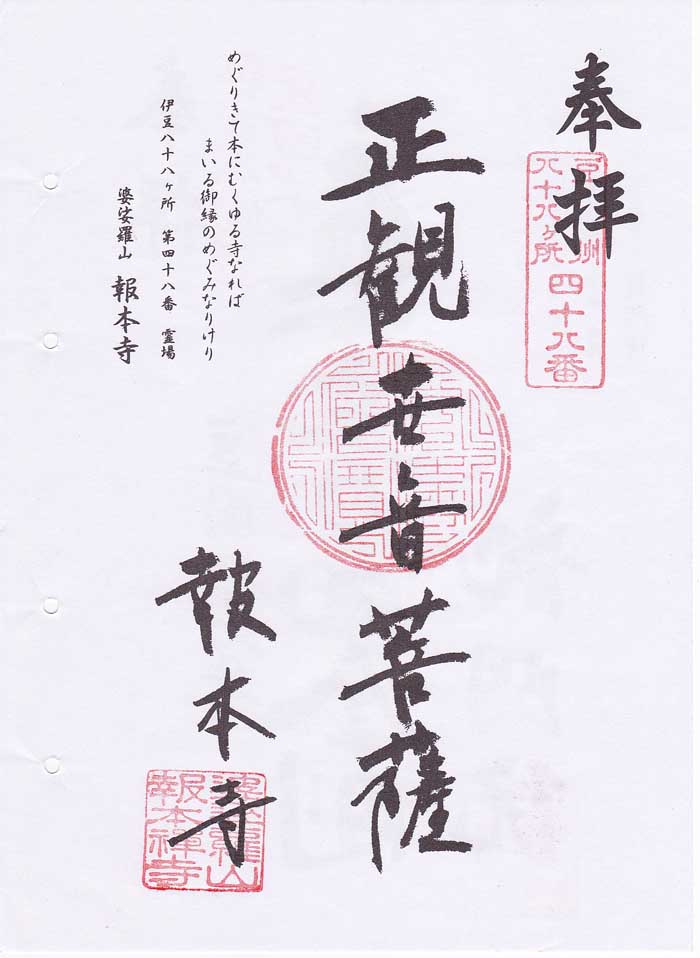 奉拝
八十八ヶ所
四十八番
正観世音菩薩
報本寺
婆娑羅山
報本禅寺
めぐりきて本にむくゆる寺なれば
まいる御縁のめぐみなりけり
伊豆八十八ヶ所 第四十八番 霊場
婆娑羅山 報本寺